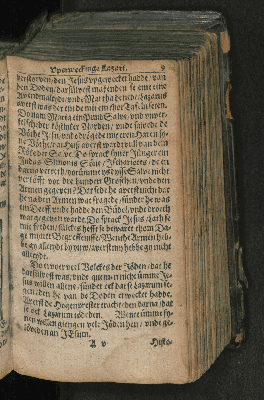 Vperweckinge Lazari. 9
verstorven / den Jesus vpgewecket hadde / van
den Doden / darsülvest makenden se eme eine
Auendtmaltydt / vnde Martha denede / Lazarus
averst was der ein de mit em thor Tafel seten.
Do nam Maria ein Pundt Salve / van
velschede köstliker Narden / vnde salvede de
Vöthe Jesu / vnde drögede mit eren Haren syne
Vöthe / dat Huß averst wardt vull van dem
Röke der Salve. Do sprack syner Jünger ein /
Judas Simonis Söne / Ischariothes / de en
darna vorreth / worümme ys desse Salve nicht
verköfft vor dre hundert Groschen / vnde den
Armen gegeven? Dat sede he averst nicht dat
he na den Armen was fragede / sünder he was
ein Deeff / vnde hadde den Büdel / vnde droch
wat gegeven wardt. Do sprack Jesus / Lath se
mit freden / sülckes hefft se bewaret thom Da-
ge myner Begreffenisse / Wente Armen hebbe
gy alletydt by yuw / averst my hebbe gy nicht
alletydt.
Do ervoer veel Volckes der Jöden / dat he
darsülvest was / vnde quemen nicht ümme Je-
sus willen allene / sünder ock dat se Lazarum se-
gen / den he van de Doden erwecket hadde.
Averst de Hogenprester trachteden darna / dat
se ock Lazarum dödeden. Wente ümme sy-
nen willen giengen vele Jöden hen / vnde ge-
löveden an JEsum.
A v Histo-